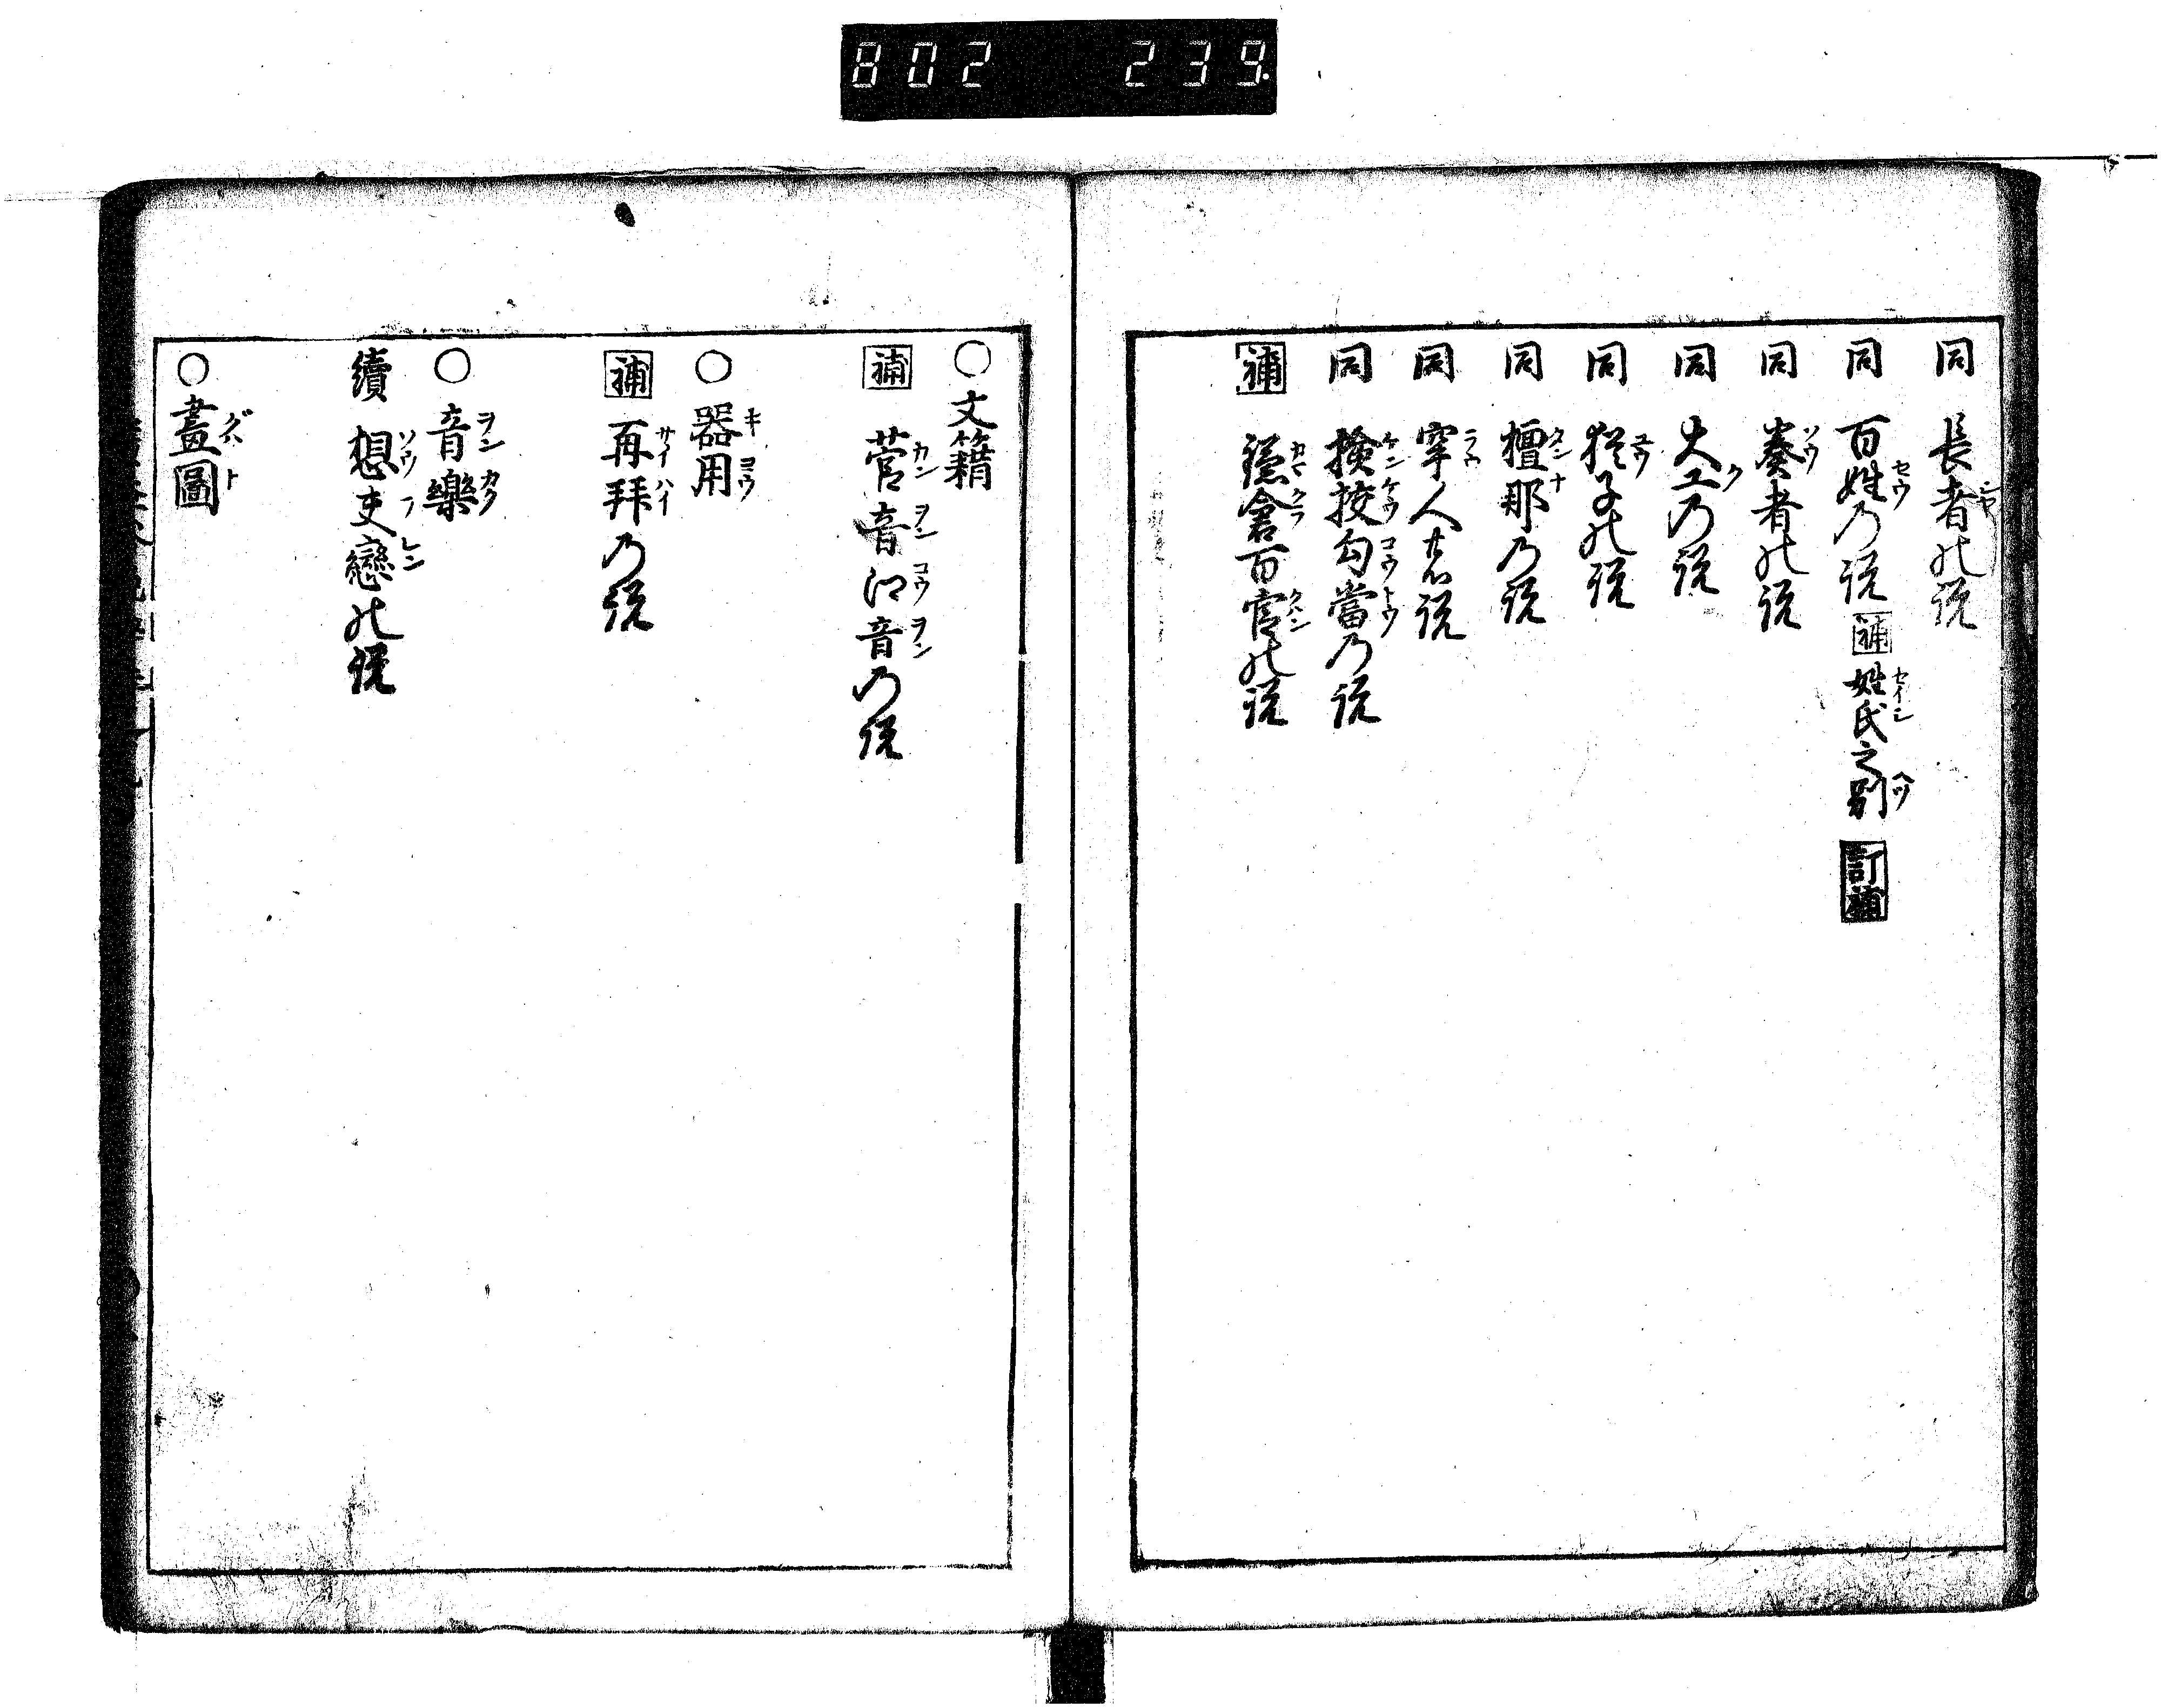 802 239.
同 長者の説
同 百姓の説 補 姓氏之別 訂補
同 奏者の説
同 大工の説
同 猶子の説
同 檀那の説
同 牢人の説
同 撿挍勾當の説
補 鎌倉百官の説
○文籍
補 菅音江音の説
○器用
補 再拜の説
○音樂
續 想夫戀の説
○畫圖